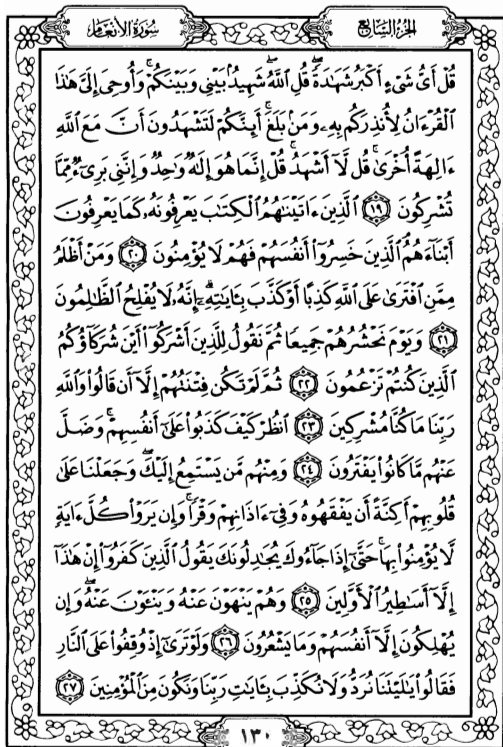 سُورَةُ الأَنْعَام
الجُزْءُ السَّابِع
قُلْ أَيُّ شَىْءٍ أَكْبَرُ شَهَٰدَةً ۖ قُلِ ٱللَّهُ ۖ شَهِيدٌۢ بَيْنِى وَبَيْنَكُمْ ۚ وَأُوحِىَ إِلَىَّ هَٰذَا
ٱلْقُرْءَانُ لِأُنذِرَكُم بِهِۦ وَمَنۢ بَلَغَ ۚ أَئِنَّكُمْ لَتَشْهَدُونَ أَنَّ مَعَ ٱللَّهِ
ءَالِهَةً أُخْرَىٰ ۚ قُل لَّآ أَشْهَدُ ۚ قُلْ إِنَّمَا هُوَ إِلَٰهٌ وَٰحِدٌ وَإِنَّنِى بَرِىٓءٌ مِّمَّا
تُشْرِكُونَ ۝١٩ ٱلَّذِينَ ءَاتَيْنَٰهُمُ ٱلْكِتَٰبَ يَعْرِفُونَهُۥ كَمَا يَعْرِفُونَ
أَبْنَآءَهُمُ ٱلَّذِينَ خَسِرُوٓا۟ أَنفُسَهُمْ فَهُمْ لَا يُؤْمِنُونَ ۝٢٠ وَمَنْ أَظْلَمُ
مِمَّنِ ٱفْتَرَىٰ عَلَى ٱللَّهِ كَذِبًا أَوْ كَذَّبَ بِـَٔايَٰتِهِۦٓ ۗ إِنَّهُۥ لَا يُفْلِحُ ٱلظَّٰلِمُونَ
۝٢١ وَيَوْمَ نَحْشُرُهُمْ جَمِيعًا ثُمَّ نَقُولُ لِلَّذِينَ أَشْرَكُوٓا۟ أَيْنَ شُرَكَآؤُكُمُ
ٱلَّذِينَ كُنتُمْ تَزْعُمُونَ ۝٢٢ ثُمَّ لَمْ تَكُن فِتْنَتُهُمْ إِلَّآ أَن قَالُوا۟ وَٱللَّهِ
رَبِّنَا مَا كُنَّا مُشْرِكِينَ ۝٢٣ ٱنظُرْ كَيْفَ كَذَبُوا۟ عَلَىٰٓ أَنفُسِهِمْ ۚ وَضَلَّ
عَنْهُم مَّا كَانُوا۟ يَفْتَرُونَ ۝٢٤ وَمِنْهُم مَّن يَسْتَمِعُ إِلَيْكَ ۖ وَجَعَلْنَا عَلَىٰ
قُلُوبِهِمْ أَكِنَّةً أَن يَفْقَهُوهُ وَفِىٓ ءَاذَانِهِمْ وَقْرًا ۚ وَإِن يَرَوْا۟ كُلَّ ءَايَةٍ
لَّا يُؤْمِنُوا۟ بِهَا ۚ حَتَّىٰٓ إِذَا جَآءُوكَ يُجَٰدِلُونَكَ يَقُولُ ٱلَّذِينَ كَفَرُوٓا۟ إِنْ هَٰذَآ
إِلَّآ أَسَٰطِيرُ ٱلْأَوَّلِينَ ۝٢٥ وَهُمْ يَنْهَوْنَ عَنْهُ وَيَنْـَٔوْنَ عَنْهُ ۖ وَإِن
يُهْلِكُونَ إِلَّآ أَنفُسَهُمْ وَمَا يَشْعُرُونَ ۝٢٦ وَلَوْ تَرَىٰٓ إِذْ وُقِفُوا۟ عَلَى ٱلنَّارِ
فَقَالُوا۟ يَٰلَيْتَنَا نُرَدُّ وَلَا نُكَذِّبَ بِـَٔايَٰتِ رَبِّنَا وَنَكُونَ مِنَ ٱلْمُؤْمِنِينَ ۝٢٧
١٣٠